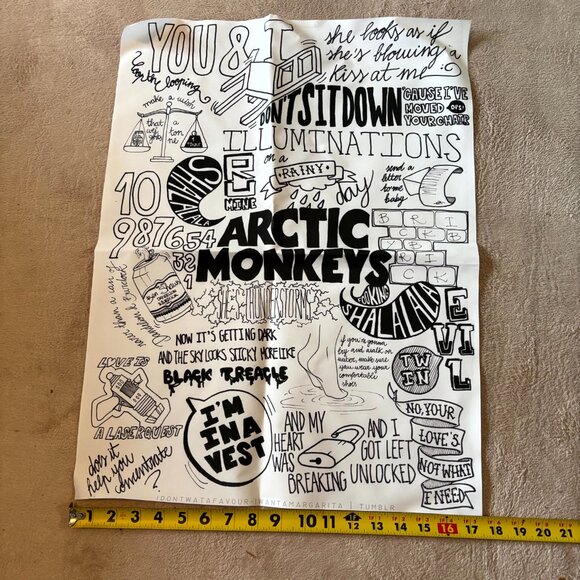 YOU & I
she looks as if
she's blowing a
kiss at me
worth looping
make a wish
that
weighs
a
ton
ne
DON'T SIT DOWN
'CAUSE I'VE
MOVED
YOUR CHAIR
ILLUMINATIONS
on a
RAINY
day
send a
letter
to me
baby
SHALALALA
E
MINE
10
9876543
2
1
ARCTIC
MONKEYS
BRICK
BY
BRICK
SHE'S THUNDERSTORMS
FUCKING
SHALALALA
EVIL
TWIN
than a can of
Dandelion & Burdock
NOW IT'S GETTING DARK
AND THE SKY LOOKS STICKY MORE LIKE
BLACK TREACLE
if you're gonna
try and walk on
water, make sure
you wear your
comfortable
shoes
LOVE IS
A LASERQUEST
I'M
IN A
VEST
AND MY
HEART
WAS
BREAKING
AND I
GOT LEFT
UNLOCKED
NO, YOUR
LOVE'S
NOT WHAT
I NEED
does it
help you
concentrate
?
IDONTWATAFAVOUR-IWANTAMARGARITA | TUMBLR
1 2 3 4 5 6 7 8 9 10 11 1F 12 13 14 15 16 17 18 19 20 21